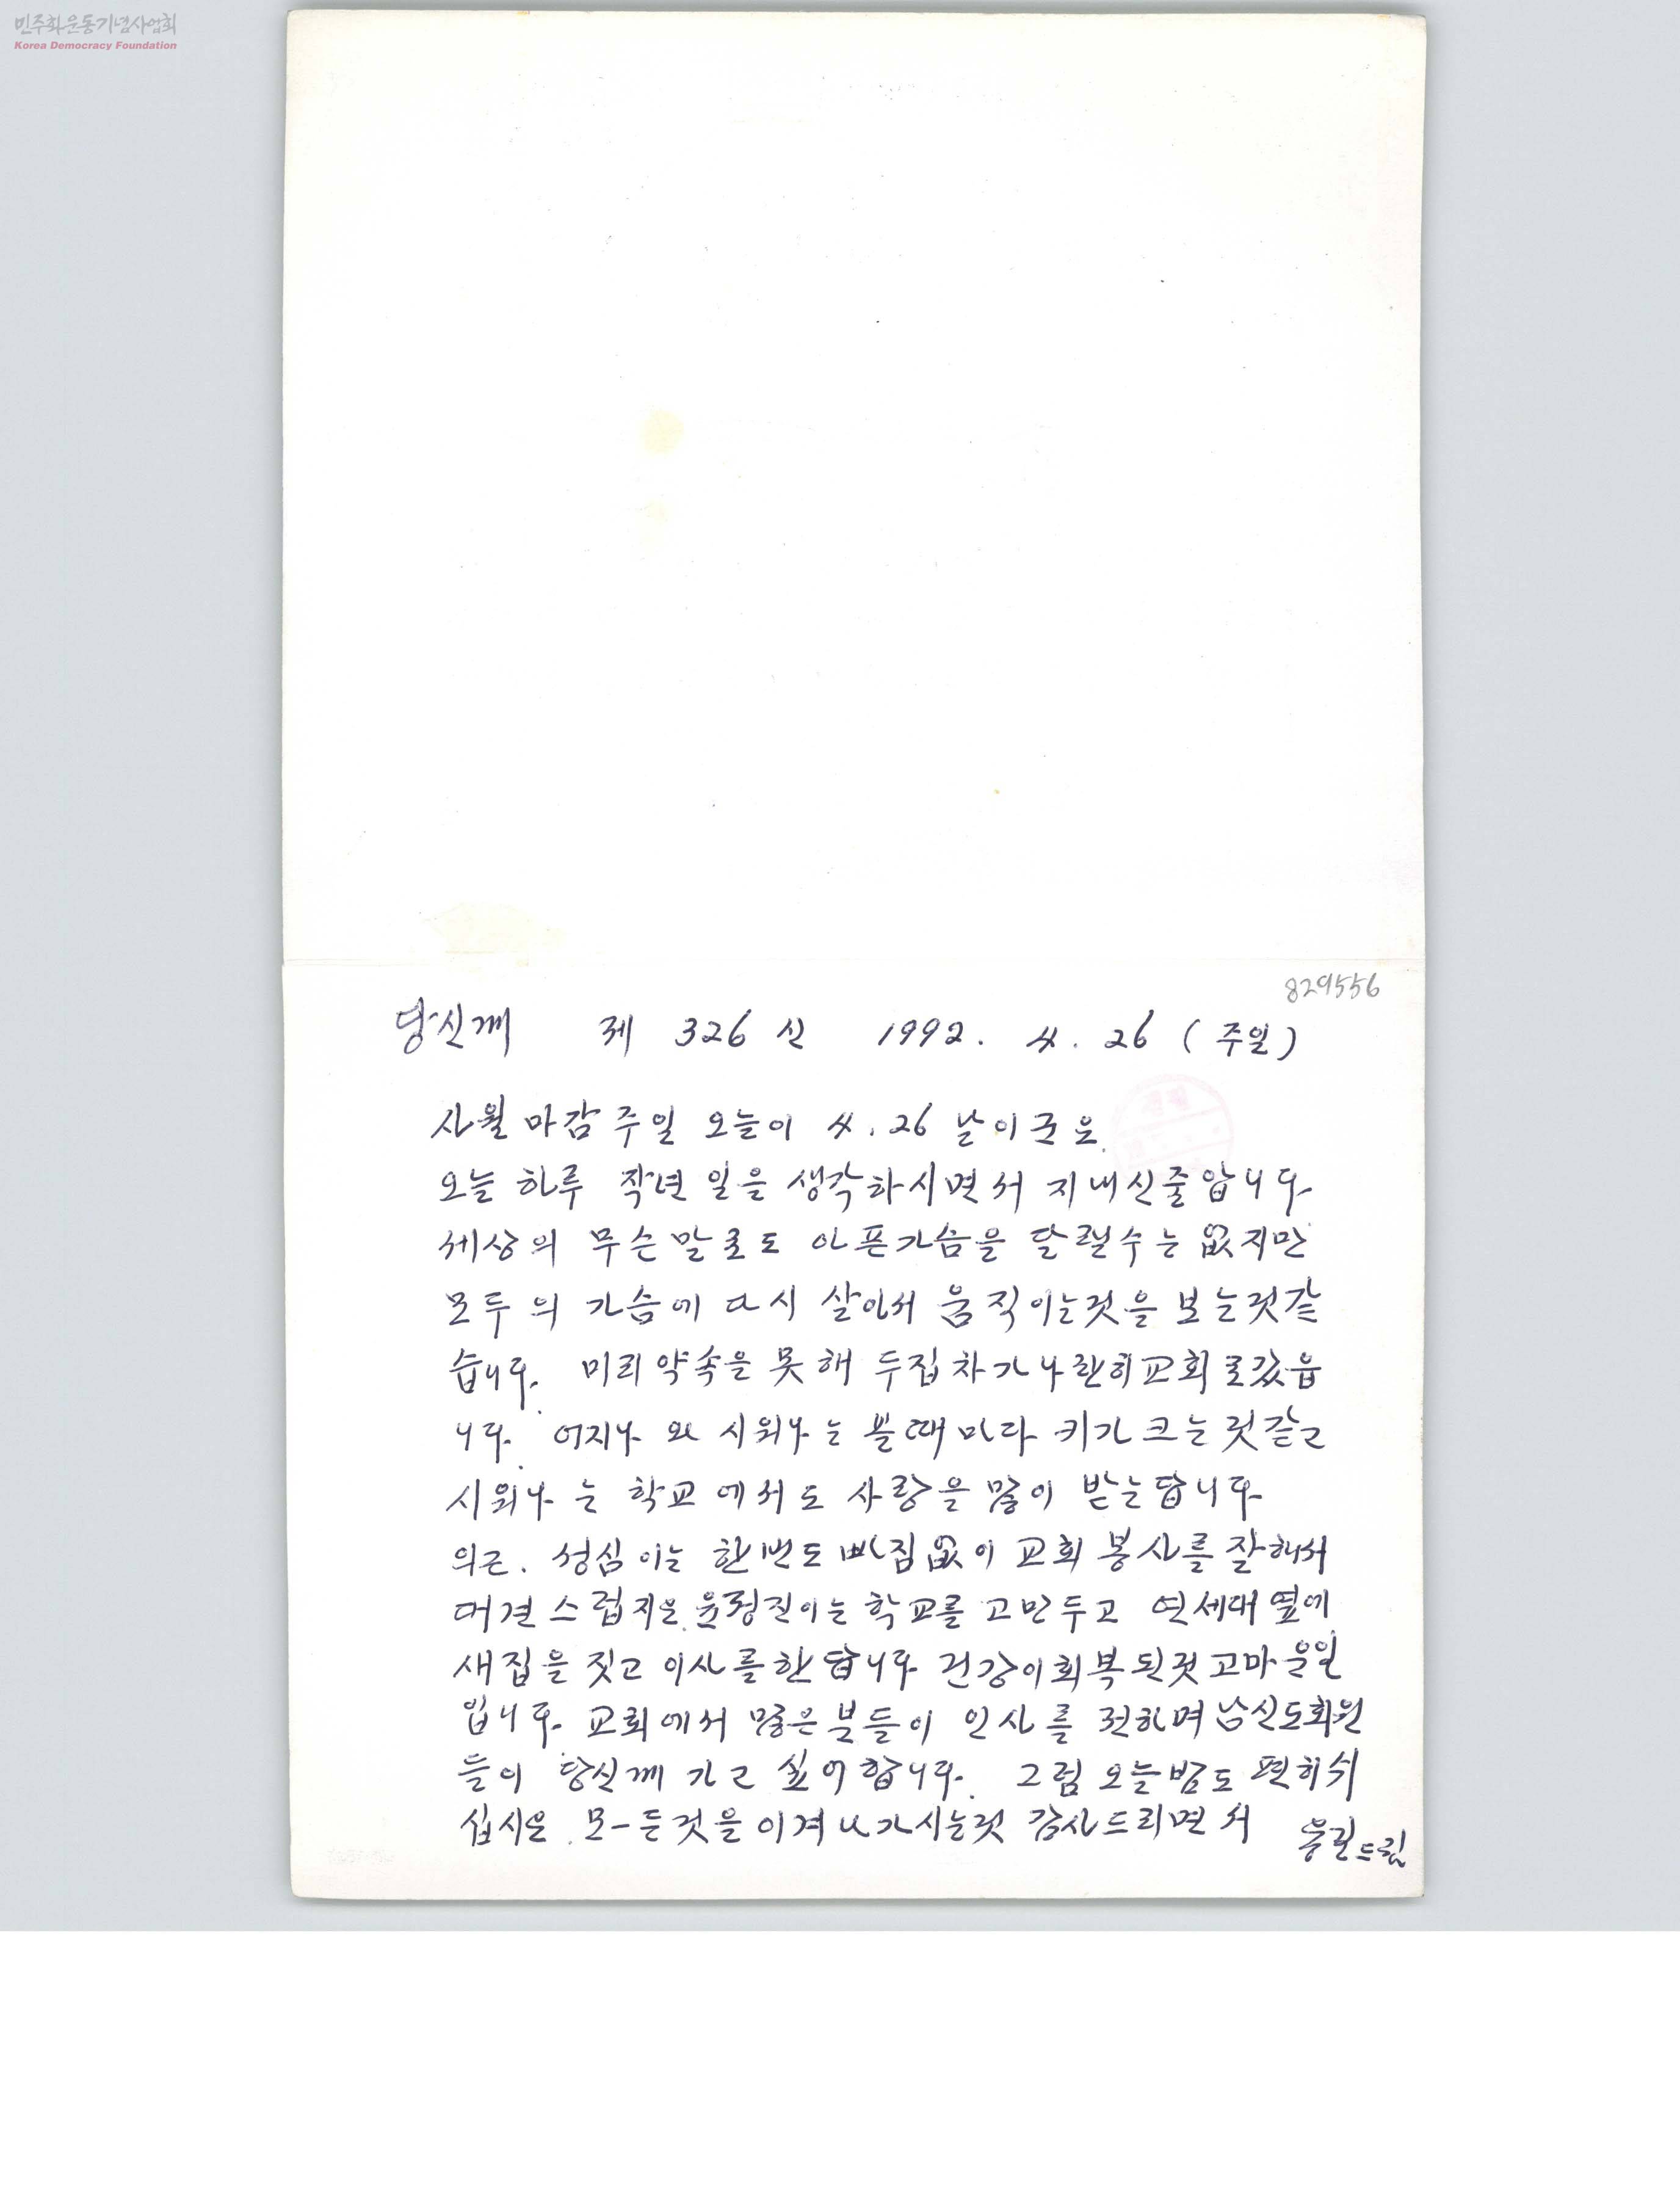 민주화운동기념사업회
Korea Democracy Foundation
829556
당신께 제 326 신 1992. 4. 26 (주일)
사월 마감 주일 오늘이 4. 26 날이군요.
오늘 하루 작년 일을 생각하시면서 지내신줄압니다.
세상의 무슨 말로도 아픈가슴을 달랠수는 없지만
모두의 가슴에 다시 살아서 움직이는것을 보는것같
습니다. 미리 약속을 못해 두집차가 나란히교회로갔읍
니다. 어지나와 시외나는 볼때마다 키가 크는것같고
시외나는 학교에서도 사랑을 많이 받는답니다.
의근. 성심이는 한번도 빠짐없이 교회 봉사를 잘해서
대견스럽지요. 윤정진이는 학교를 고만두고 연세대 옆에
새집을 짓고 이사를한답니다. 건강이회복된것 고마운일
입니다. 교회에서 많은분들이 인사를 전하며 남신도회원
들이 당신께 가고 싶어합니다. 그럼 오늘밤도 편히쉬
십시요. 모-든것을 이겨나가시는것 감사드리면서
용길드림